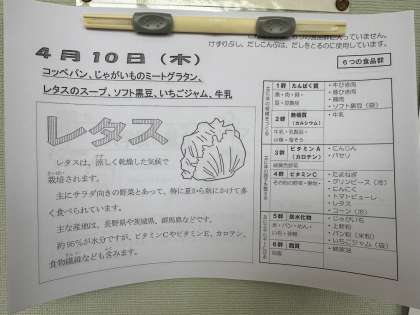 の食品群に入っていません。
けずりぶし、だしこんぶは、だしをとるのに使用しています。
4月10日(木)
6つの食品群
コッペパン、じゃがいものミートグラタン、
レタスのスープ、ソフト黒豆、いちごジャム、牛乳
レタス
レタスは、涼しく乾燥した気候で
栽培されます。
主にサラダ向きの野菜とあって、特に夏から秋にかけて多
く食べられています。
主な産地は、長野県や茨城県、群馬県などです。
約95%が水分ですが、ビタミンCやビタミンE、カロテン、
食物繊維なども含みます。
1群 たんぱく質
魚・肉・卵・
豆・豆製品
・牛ひき肉
・豚ひき肉
・鶏肉
・ソフト黒豆(袋)
2群 無機質
(カルシウム)
牛乳・乳製品・
小魚・海そう
・牛乳
3群 ビタミンA
(カロテン)
緑黄色野菜
・にんじん
・パセリ
4群 ビタミンC
その他の野菜・果物・
・たまねぎ
・グリンピース(冷)
・にんにく
・トマトピューレ
・レタス
・コーン(冷)
5群 炭水化物
米・パン・めん・
いも・砂糖
・じゃがいも
・上新粉
・パン粉(米粉)
・いちごジャム(袋)
6群 脂質
油脂